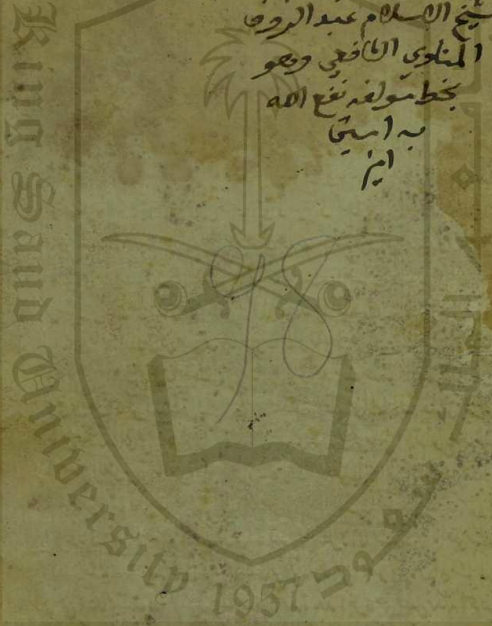 شيخ الاسلام عبد الروف
المناوي الشافعي وهو
بخط مولفه نفع الله
به امين
امين
98
King Saud University 1957